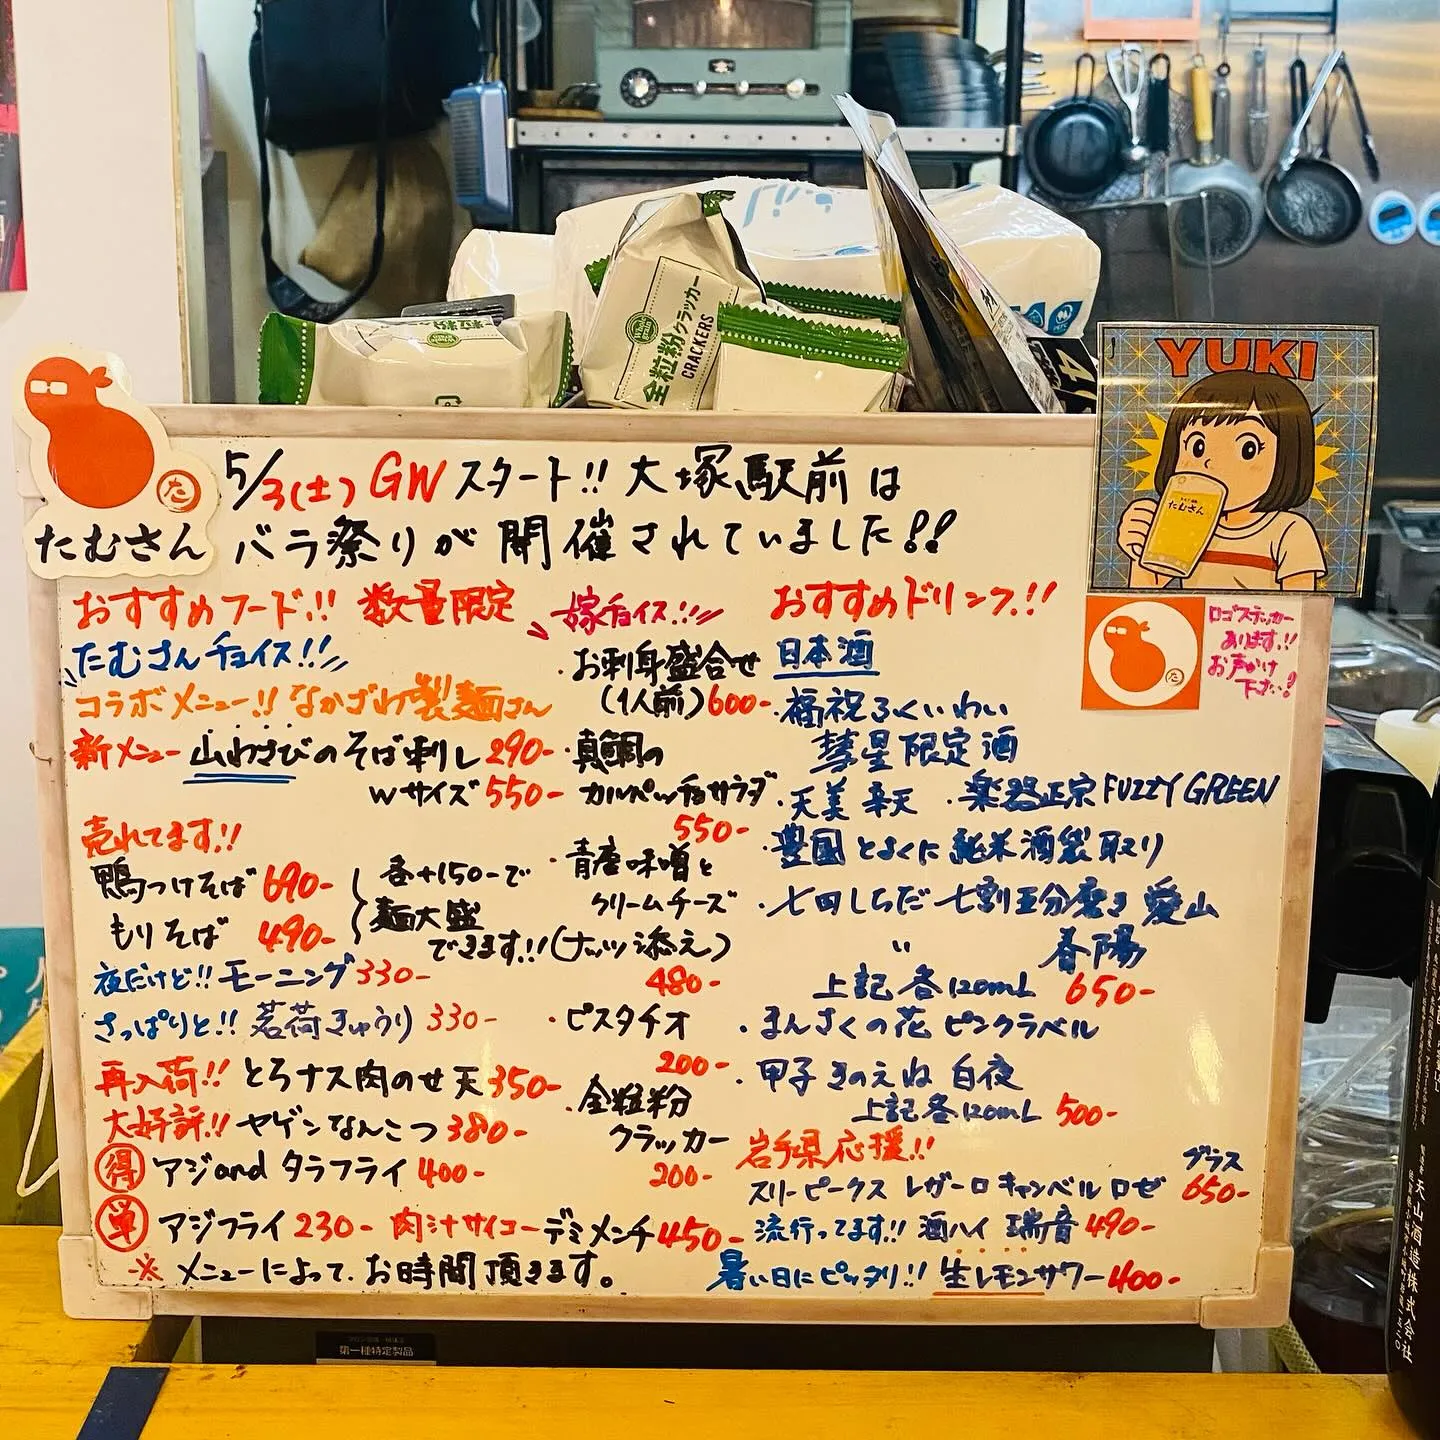 全粒粉クラッカー
CRACKERS
YUKI
たむさん
た
たむさん
5/3(土) GWスタート!! 大塚駅前は
バラ祭りが開催されていました!!
おすすめフード!! 数量限定
たむさんチョイス!!
コラボメニュー!! なかざわ製麺さん
新メニュー 山わさびのそば刺し 290-
Wサイズ 550-
売れてます!!
鴨つけそば 690-
もりそば 490-
各+150-で
麺大盛
できます!!
夜だけど!! モーニング 330-
さっぱりと!! 茗荷きゅうり 330-
再入荷!! とろナス肉のせ天 350-
大好評!! ヤゲンなんこつ 380-
得 アジand タラフライ 400-
単 アジフライ 230- 肉汁サイコーデミメンチ 450-
※ メニューによって、お時間頂きます。
嫁チョイス!!
・お刺身盛合せ
(1人前) 600-
・真鯛の
カルパッチョサラダ
550-
・青唐味噌と
クリームチーズ
(ナッツ添え)
480-
・ピスタチオ
200-
・全粒粉
クラッカー
200-
おすすめドリンク!!
日本酒
・福祝 ろくいわい
彗星限定酒
・天美 辛天 ・楽器正宗 FUZZY GREEN
・豊國 とよくに 純米酒袋取り
・七田 しちだ 七割五分磨き 愛山
〃 春陽
上記各120mL 650-
・まんさくの花 ピンクラベル
・甲子 きのえね 白夜
上記各120mL 500-
岩手県応援!!
グラス
スリーピークス レガーロ キャンベル ロゼ 650-
流行ってます!! 酒ハイ 瑞音 490-
暑い日にピッタリ!! 生レモンサワー 400-
ロゴステッカー
あります!!
お声かけ
下さい!
た
第一種特定製品
天山酒造株式会社